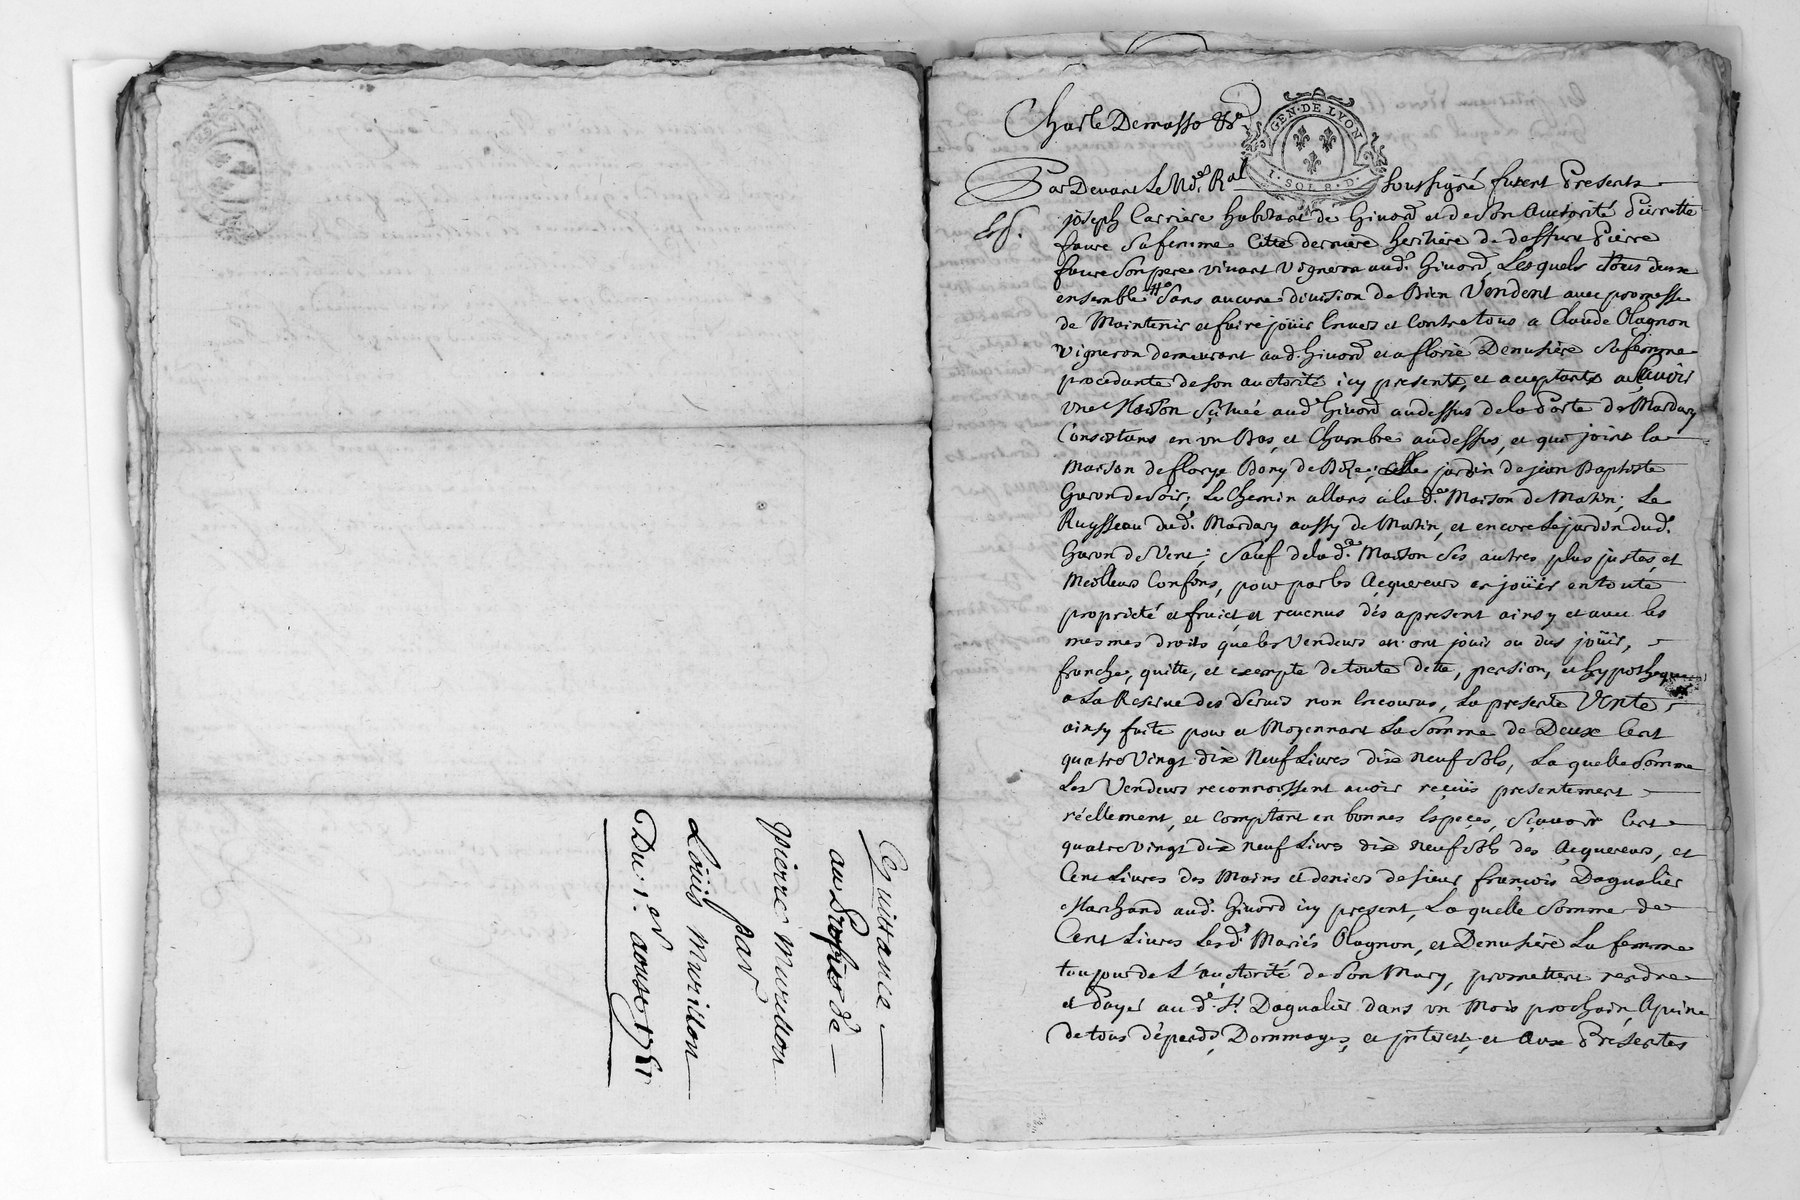 Quittance
au Proffict de
pierre murillon
par
Loüis murillon
Du: 1.er aoust 17
Charle Demasso
GEN·DE LYON
1·SOL 8·D·
Par Devant Le No.re R.al soussigné furent Presents
joseph Carriere habitant de Givord et de son Auctorité Pierrette
faure sa femme Cette derniere heritiere de deffunt Pierre
faure son pere vivant Vigneron aud. Givord, Lesquels tous deux
ensemble Sans aucune division de Bien Vendent avec promesse
de Maintenir et faire joüir Envers et Contre tous a Claude Olagnon
vigneron demeurant aud. Givord et a florie Denusière sa femme
procedante de son auctorité icy presents, et acceptants a sçavoir
vne Maison Scituée aud. Givord au dessus de la Porte de Mardary
Consistans en vn Bas, et Chambre au dessus, et qui joint la
Maison de florye Bony de Bize; jardin de jean Baptiste
Garon de soir; Le Chemin allans a la d.e Maison de Matin; Le
Ruysseau dud. Mardary aussy de Matin, et encore le jardin dud.
Garon de Vent; Sauf de la d.e Maison Ses autres plus justes, et
Meilleurs Confins, pour par les Acquereurs en joüir en toute
proprieté et fruict, et revenus dés apresent ainsy et avec les
mesmes droits que les Vendeurs en ont joüis ou dus joüir,
franche, quitte, et exempte de toute dette, pension, et hypotheque
a La Reserve des Servis non Encourus, La presente Vente
ainsy faite pour et Moyennant La Somme de Deux Cent
quatre Vingt dix Neuf Livres dix neuf sols, La quelle Somme
Les Vendeurs reconnoissent avoir reçüs presentement
réellement, et Comptant en bonnes Especes, Sçavoir Cent
quatre Vingt dix neuf Livres dix neuf sols des Acquereurs, et
Cent Livres des Mains et deniers de sieur françois Dagualier
Marchand aud. Givord icy present, La quelle Somme de
Cent Livres Lesd. Mariés Olagnon, et Denusière La femme
toujour de L'auctorité de son Mary, promettent rendre
et Payer au d. Sr. Dagualier dans vn Mois prochain, A peine
de tous dépends, Dommages, et jnterest, et Aux Presentes